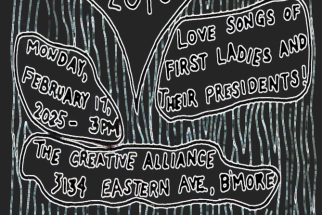 MONDAY,
FEBRUARY 17,
2025 - 3PM
LOVE SONGS OF
FIRST LADIES AND
THEIR PRESIDENTS!
THE CREATIVE ALLIANCE
3134 EASTERN AVE, B'MORE